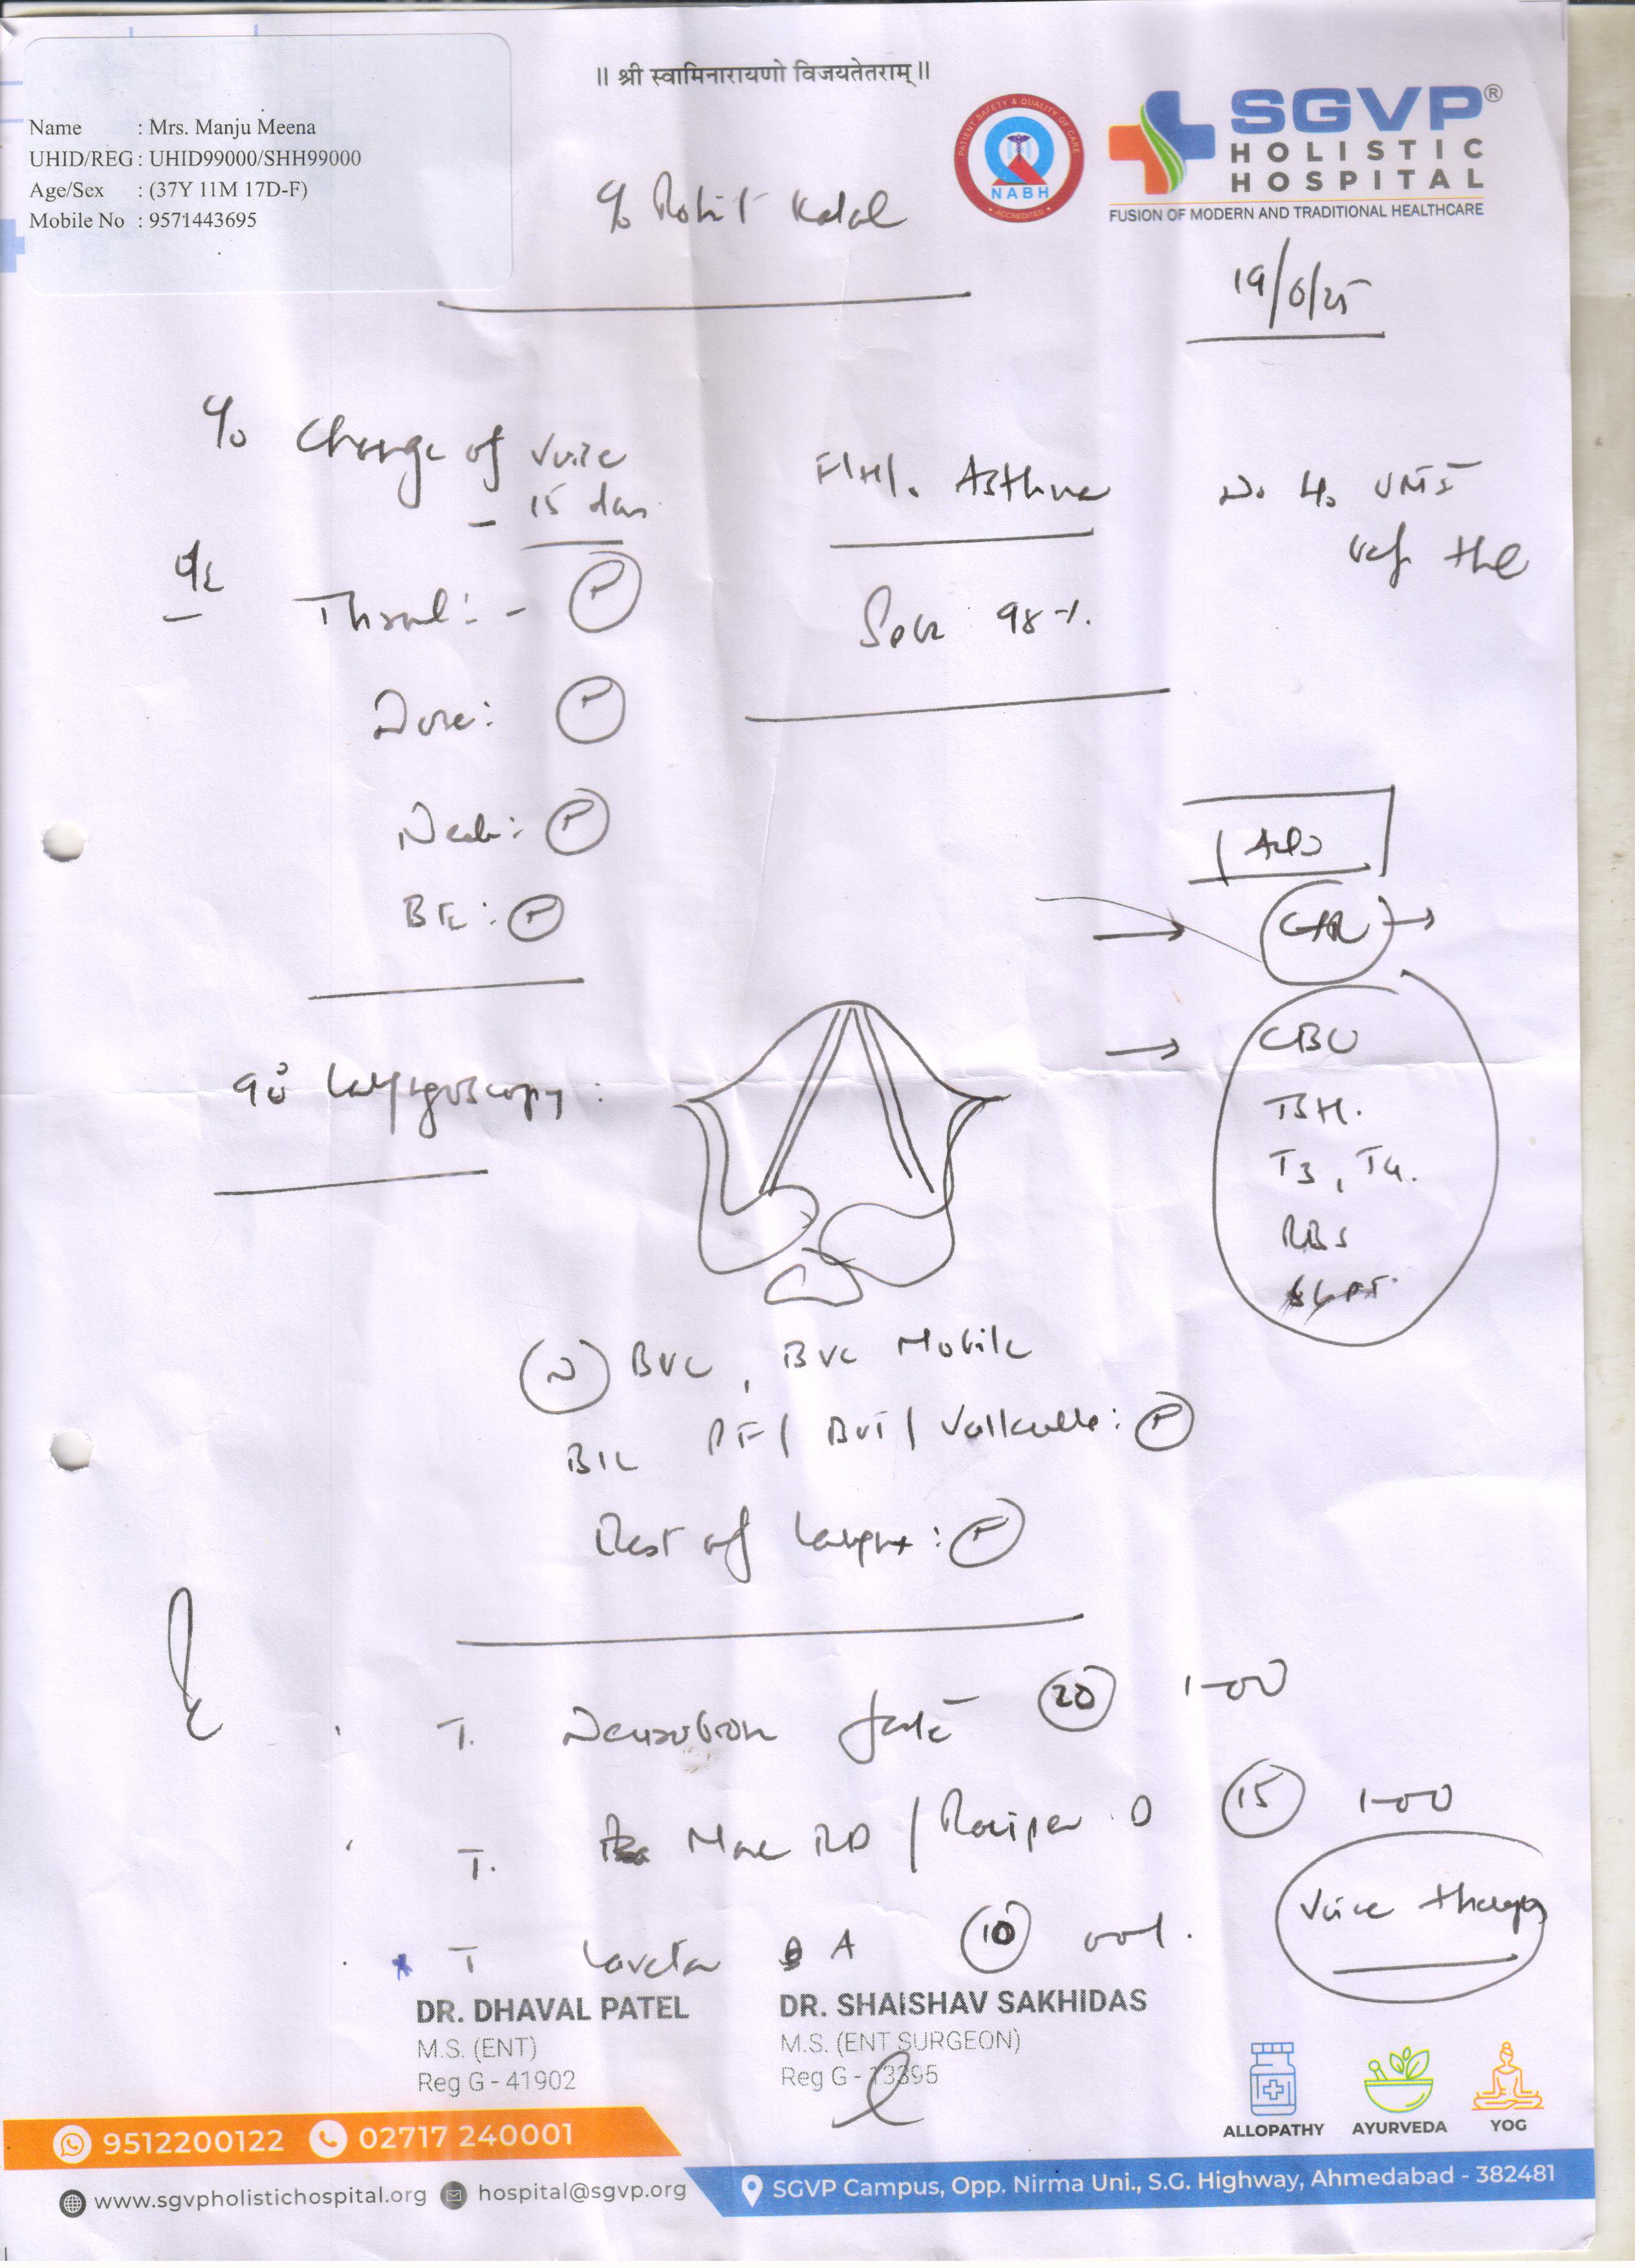 ॥ श्री स्वामिनारायणो विजयतेतराम् ॥
Name : Mrs. Manju Meena
UHID/REG : UHID99000/SHH99000
Age/Sex : (37Y 11M 17D-F)
Mobile No : 9571443695
PATIENT SAFETY & QUALITY OF CARE
NABH
ACCREDITED
SGVP®
HOLISTIC
HOSPITAL
FUSION OF MODERN AND TRADITIONAL HEALTHCARE
Rohit
19/6/25
c/o Change of voice
- 15 days
F/H/o Asthma
No H/o URTI
O/E
Throat: -
SpO2 98%
Nose:
Neck:
CBC
TSH.
T3, T4.
RBS
SGPT
90° laryngoscopy:
(N) BVC, BVC Mobile
B/L PF/ / Vallecula:
Rest of larynx:
T. Neurobion forte (20) 1-0-0
T. (15) 1-0-0
T A (10) 0-0-1.
Voice therapy
DR. DHAVAL PATEL
M.S. (ENT)
Reg G - 41902
DR. SHAISHAV SAKHIDAS
M.S. (ENT SURGEON)
Reg G - 13395
ALLOPATHY AYURVEDA YOG
9512200122 02717 240001
www.sgvpholistichospital.org hospital@sgvp.org
SGVP Campus, Opp. Nirma Uni., S.G. Highway, Ahmedabad - 382481